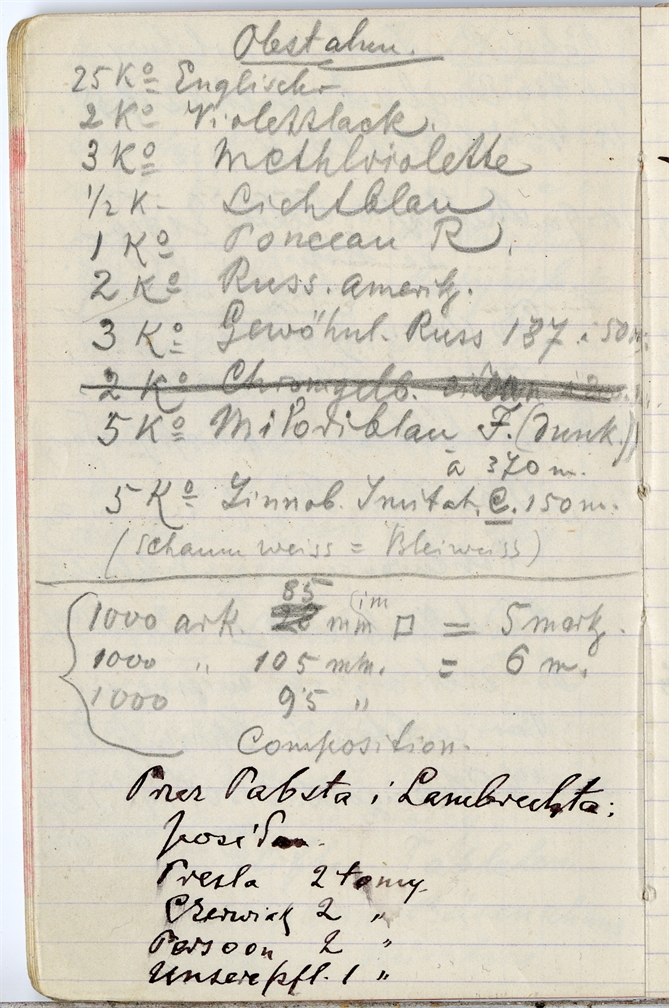 Obstalun.
25 Kº Englischr
2 Kº Violettlack.
3 Kº Methlviolette
1/2 K- Lichtblau
1 Kº Ponceau R.
2 Kº Russ. amerik.
3 Kº Gewöhnl. Russ 137 à 50 m.
2 Kº Chromgelb.
5 Kº Miloriblau F. (dunk.)
à 370 m.
5 Kº Zinnob. Imitat. C. 150 m.
(Schaumweiss = Bleiweiss)
85 (im
1000 ark. mm □ = 5 mark.
1000 " 105 mm. = 6 m.
1000 95 "
Composition.
Prer Pabsta i Lambrechta:
posi
Presla 2 tomy
Czerwiak 2 "
Persoon 2 "
Unsere pfl. 1 "